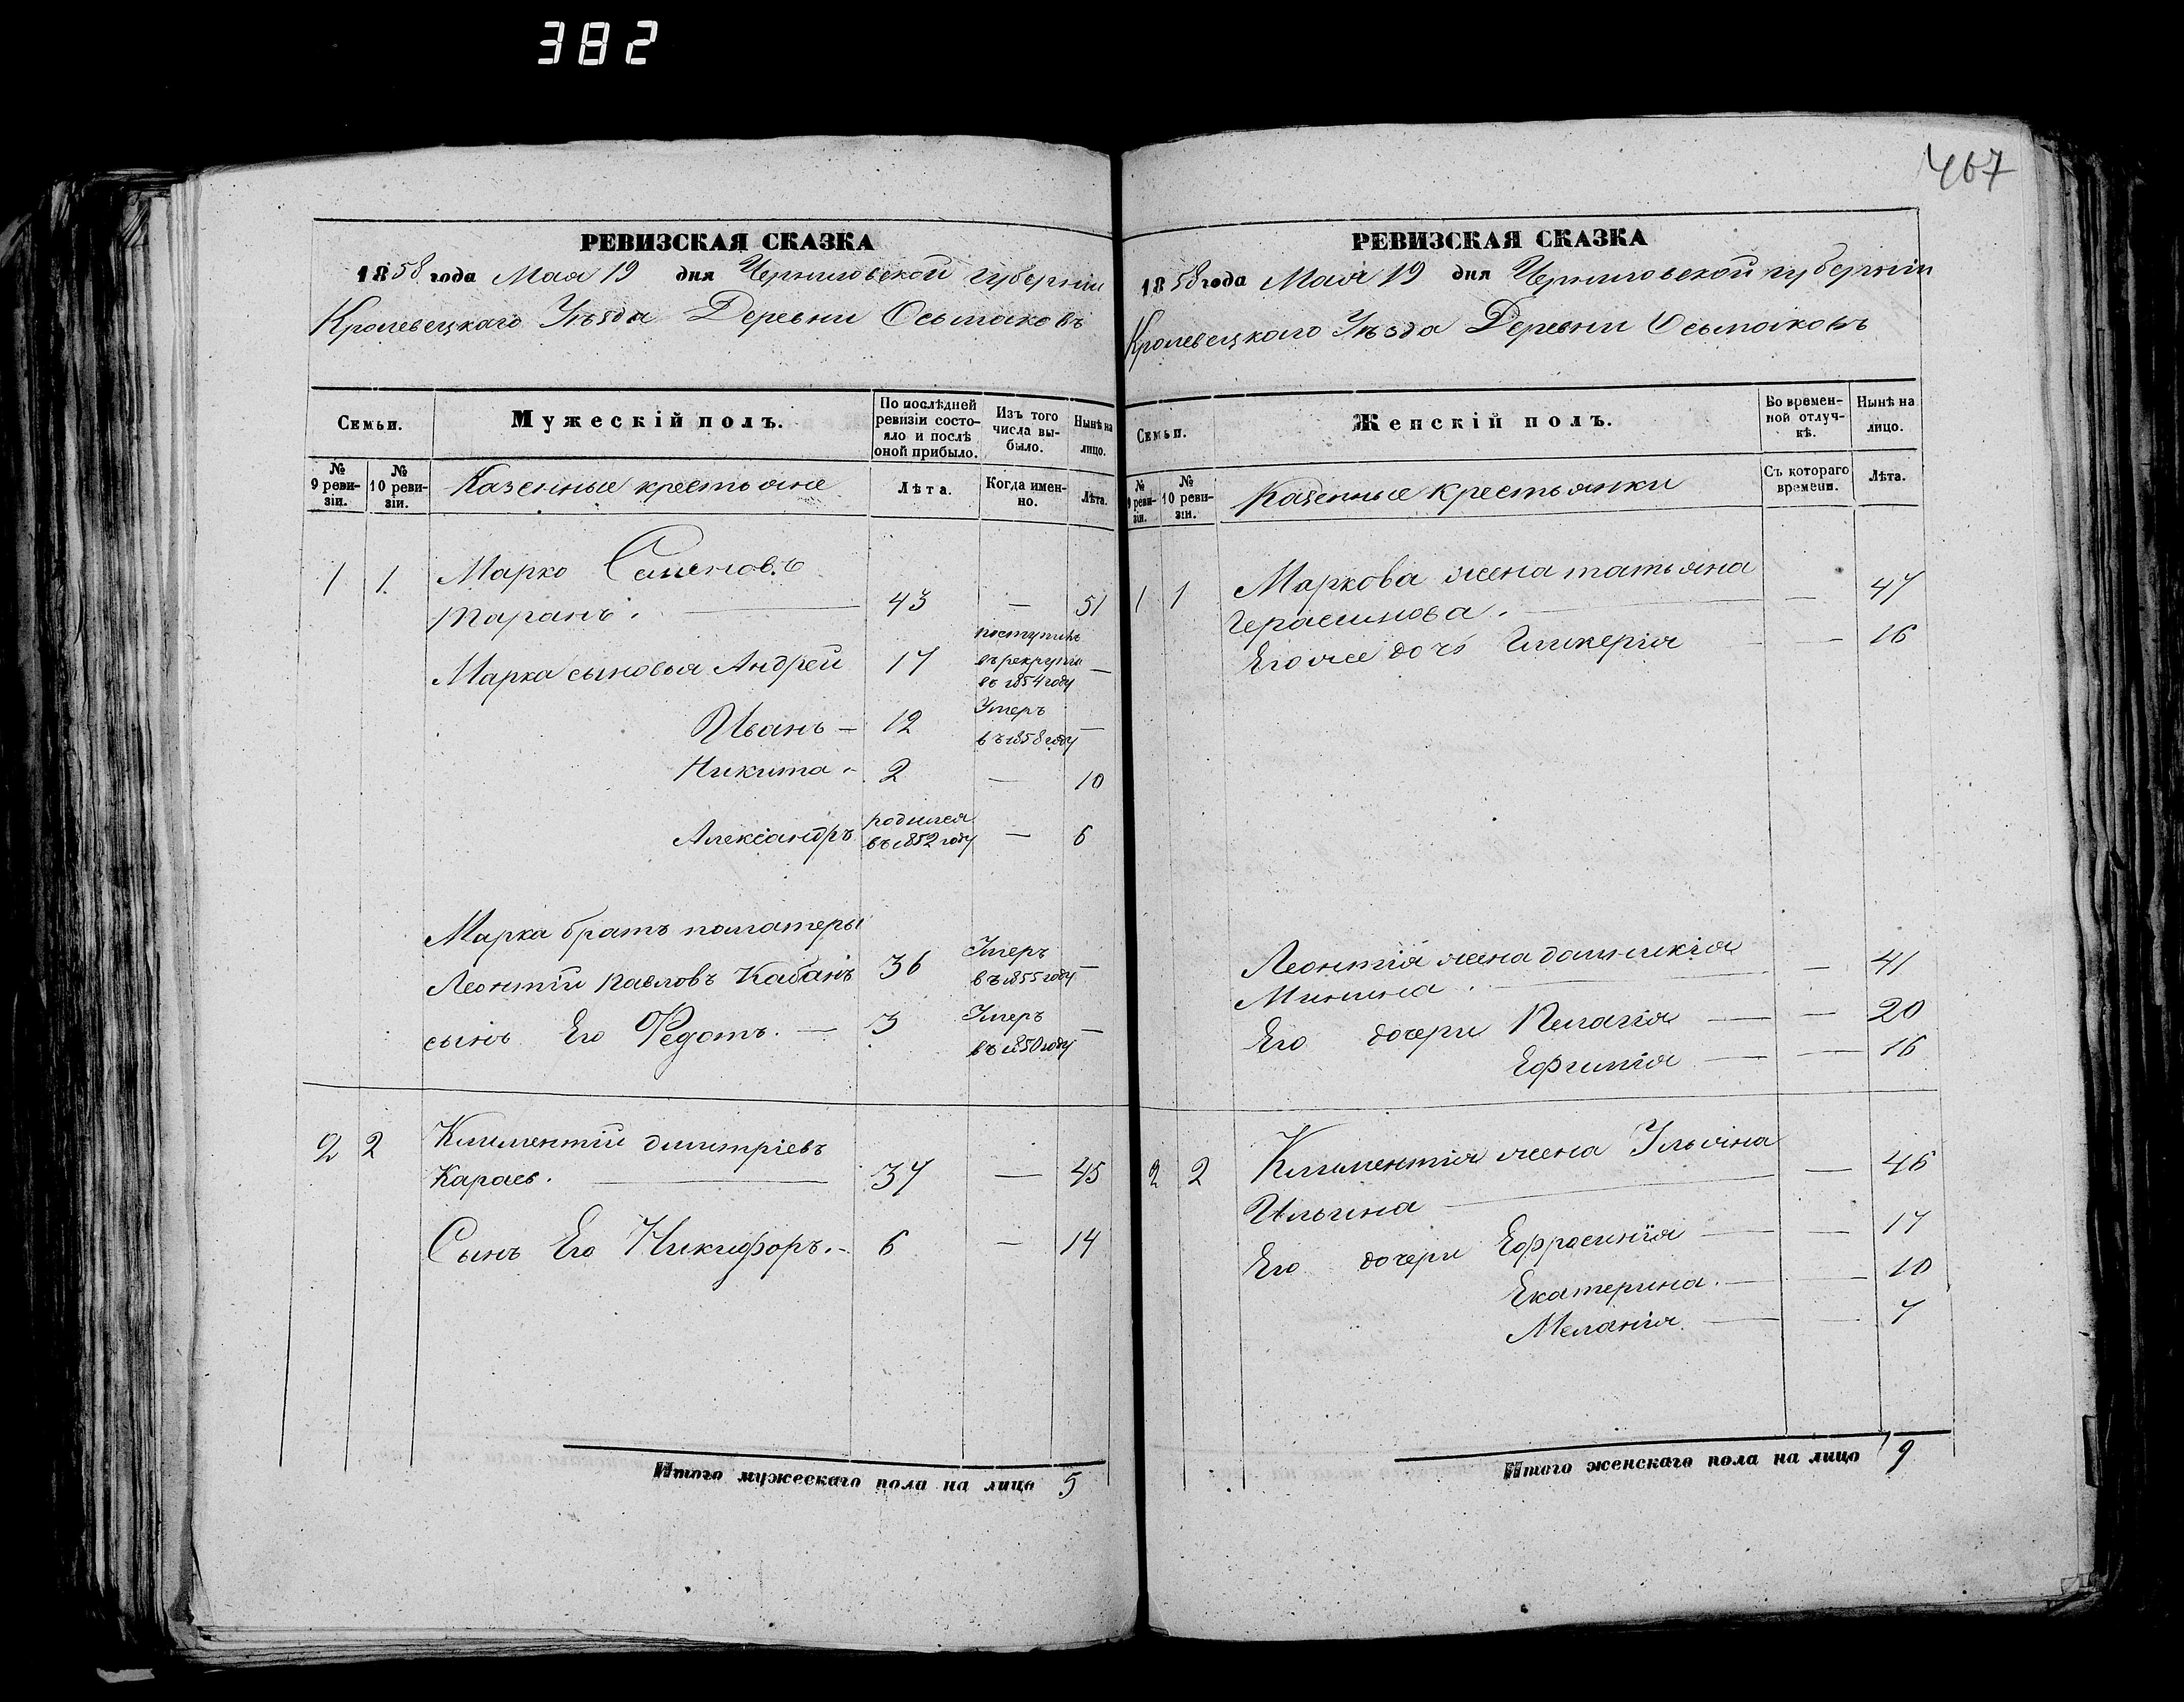 382
467
РЕВИЗСКАЯ СКАЗКА
1858 года Мая 19 дня Черниговской губернии
Кролевецкаго Уѣзда Деревни Осьмаковъ
Семьи.
Мужескій полъ.
По послѣдней ревизіи состояло и послѣ оной прибыло.
Изъ того числа выбыло.
Нынѣ на лицо.
№ 9 ревизіи.
№ 10 ревизіи.
Казенные крестьяне
Лѣта.
Когда именно.
Лѣта.
1 1. Марко Семеновъ
Таранъ. 43 — 51
Марка сыновья Андрей 17 поступилъ въ рекруты въ 1854 году —
Иванъ — 12 Умеръ въ 1858 году —
Никита - 2 — 10
Александръ родился въ 1852 году — 6
Марка братъ поматеры
Леонтій Павловъ Кабанъ 36 Умеръ въ 1855 году —
сынъ Его Федотъ. — 3 Умеръ въ 1850 году —
2 2 Климентій Дмитріевъ
Караев. 37 — 45
Сынъ Его Никифоръ. - 6 — 14
Итого мужескаго пола на лицо 5
РЕВИЗСКАЯ СКАЗКА
1858 года Мая 19 дня Черниговской губерніи
Кролевецкаго Уѣзда Деревни Осьмаковъ
Семьи.
Женскій полъ.
Во временной отлучкѣ.
Нынѣ на лицо.
№ 9 ревизіи.
№ 10 ревизіи.
Казенные крестьянки
Съ котораго времени.
Лѣта.
1 1 Маркова жена татьяна
Герасимова. — 47
Его же дочь Гликерія — 16
Леонтія жена домникія
Минина. — 41
Его дочери Пелагія — — 20
Ефимія — — 16
2 2 Климентія жена Ульяна
Ильина — — 46
Его дочери Ефросинія — — 17
Екатерина. — — 10
Меланія — — 7
Итого женскаго пола на лицо 9